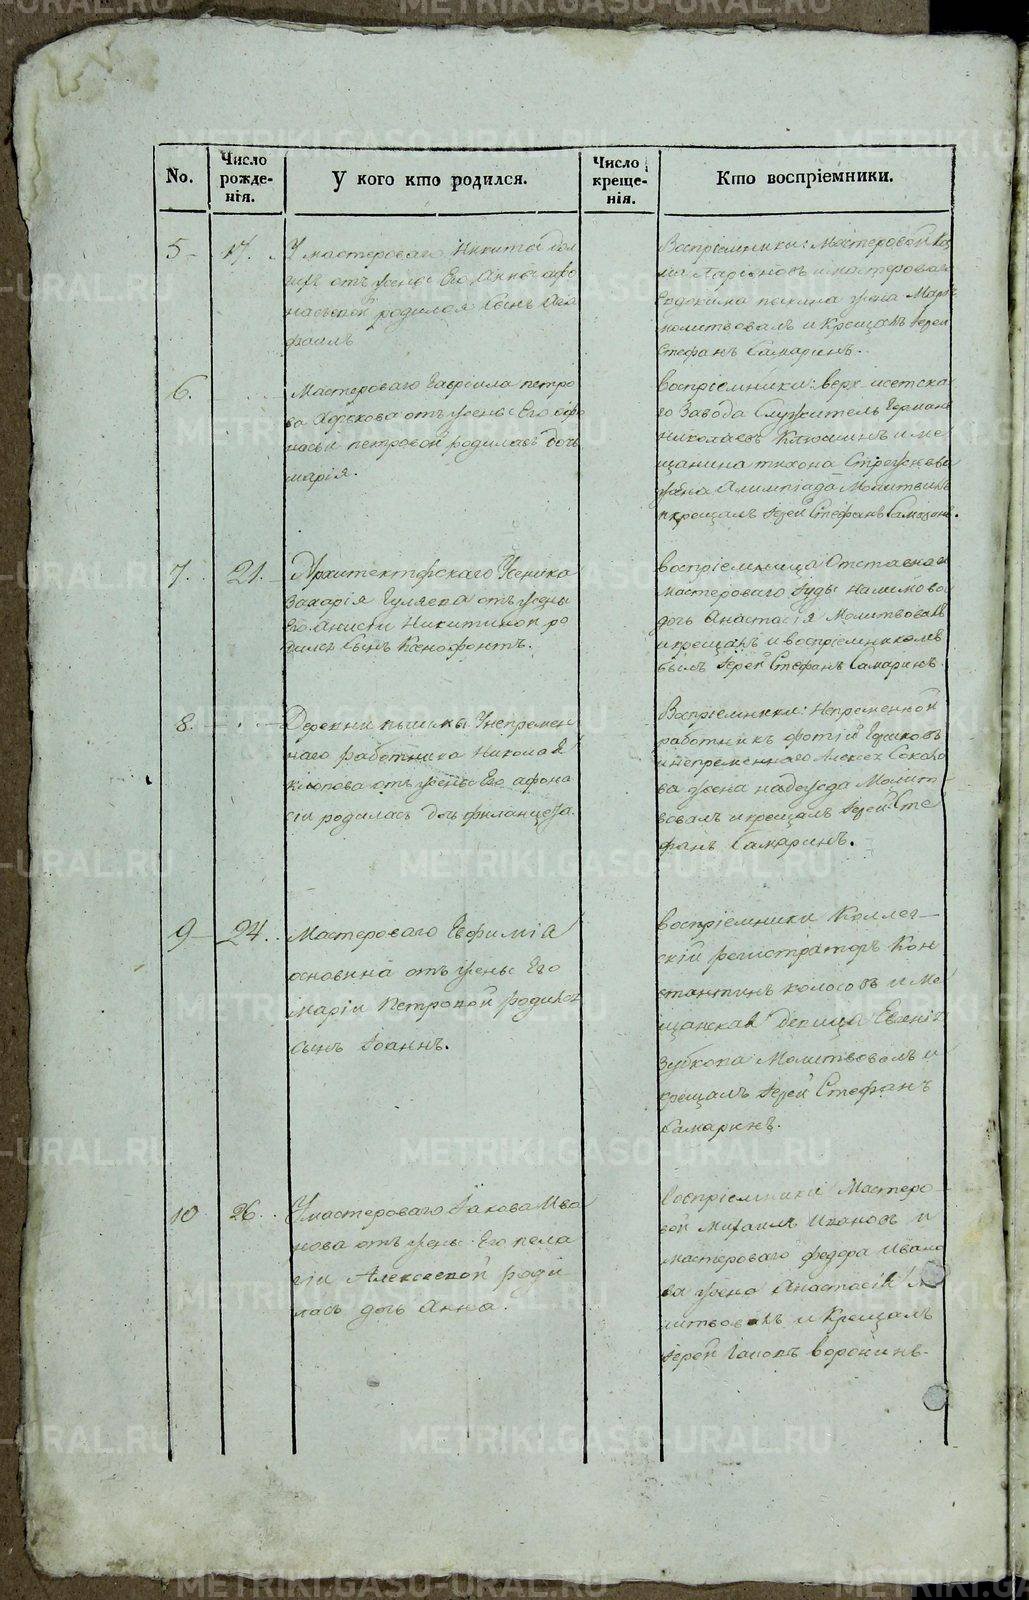 No.
Число рожде-нія.
У кого кто родился.
Число креще-нія.
Кто воспріемники.
5 - 17.
У мастероваго Никиты
отъ жены Его Анны афо
насьевой родился сынъ
фаилъ
Воспріемники: Мастеровой
Ларіоновъ и мастероваго
Евдокима жена
молитвовалъ и Крещалъ Іерей
Стефанъ Самаринъ.
6.
Мастероваго Гавріила петро
ва отъ жены Его афо
насьи петровой родилась дочь
марія.
воспріемники: верх исетска
го Завода Служитель Герман
николаевъ и ме
щанина тихона
жена Алимпіада Молитвилъ
и крещалъ Іерей Стефанъ Самаринъ.
7. 21.
Архитекторскаго Ученика
Захарія отъ жены
Его Анисіи Никитиной ро
дился Сынъ Ксенофонтъ.
воспріемница Отставнаго
мастероваго Іуды
дочь Анастасія Молитвовалъ
и крещалъ и воспріемникомъ
былъ Іерей Стефанъ Самаринъ.
8.
Деревни пышмы Унепремен
наго работника Николая
отъ жены Его афона
сіи родилась дочь филанцета.
Воспріемники: Непременной
работникъ фотій
и непременнаго Алексея Соколо
ва жена надежда Молит
вовалъ и крещалъ Іерей Сте
фанъ Самаринъ.
9 - 24.
Мастероваго Евфимія
основина отъ жены Его
маріи Петровой родился
сынъ Іоаннъ.
воспріемники Коллег-
скій регистраторъ Кон
стантинъ колосовъ и Ме
щанская девица Евгенія
Зубкова Молитвовалъ и
крещалъ Іерей Стефанъ
Самаринъ.
10 26.
Умастероваго Іакова Ива
нова отъ жены Его пела
гіи Алексеевой роди
лась дочь Анна.
Воспріемники Мастеро
вой Михаилъ Ивановъ и
мастероваго федора Ивано
ва жена Анастасія Мо
литвовалъ и Крещалъ
Іерей Іаковъ воронинъ.
METRIKI.GASO-URAL.RU